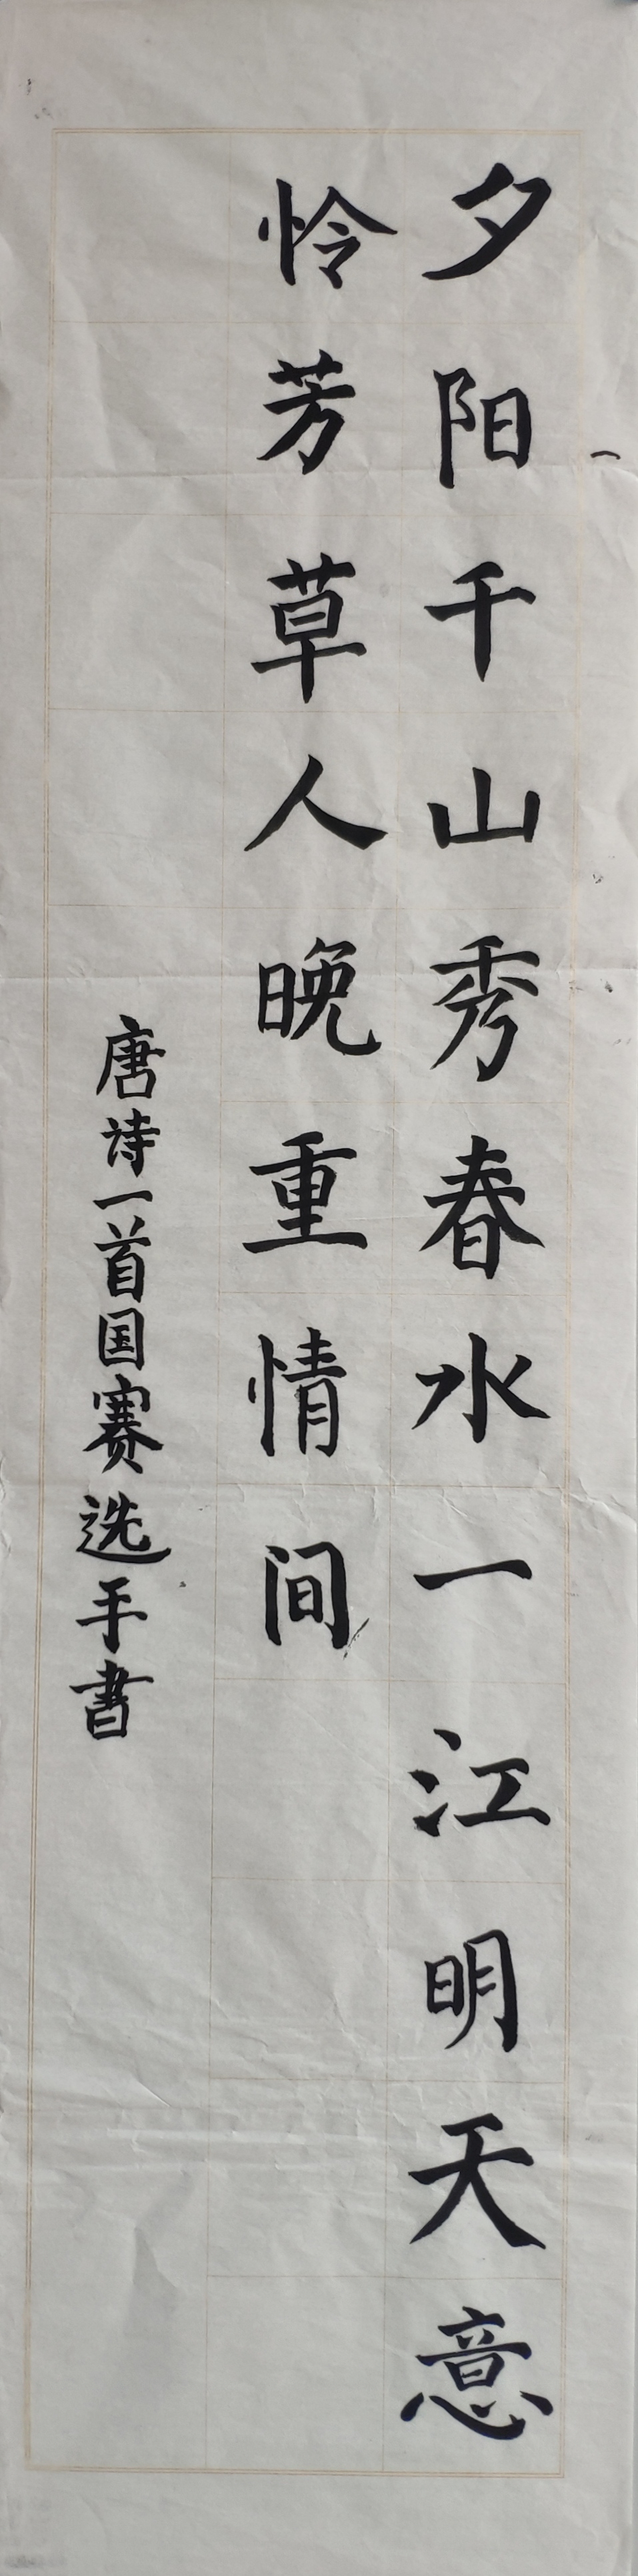 夕阳千山秀春水一江明天意
怜芳草人晚重情间
唐诗一首国赛选手书